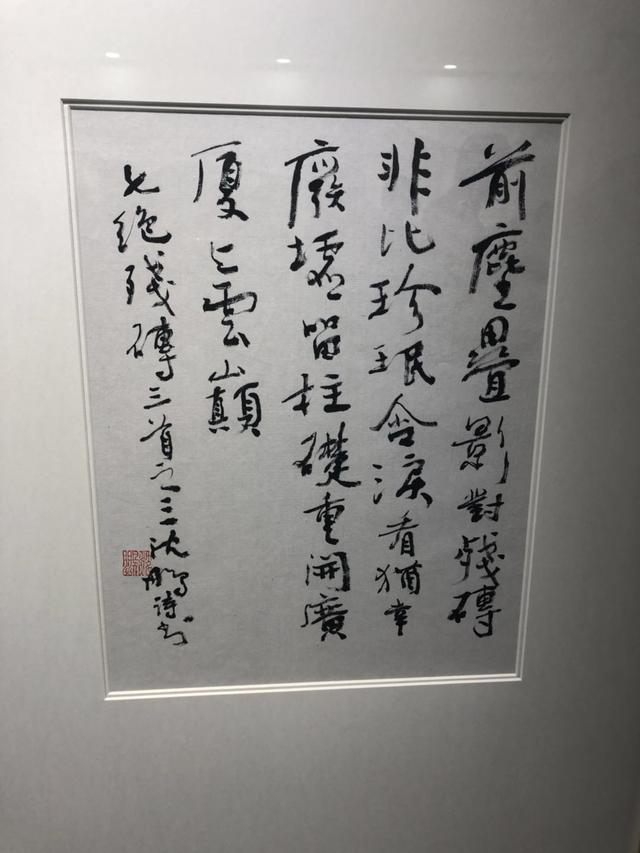 前塵疊影對殘磚
非比珍珉含淚看猶幸
廢墟留柱礎重開廣
厦上雲巔
七絕殘磚三首之三沈鵬詩書